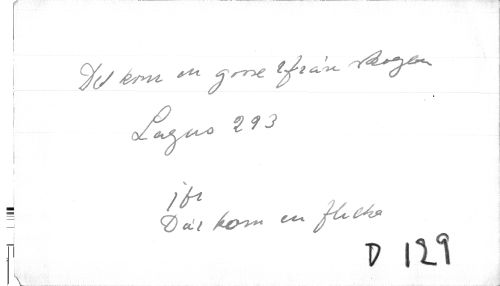 Det kom en gosse ifrån skogen
Lagus 293
jfr
Där kom en flicka
D 129